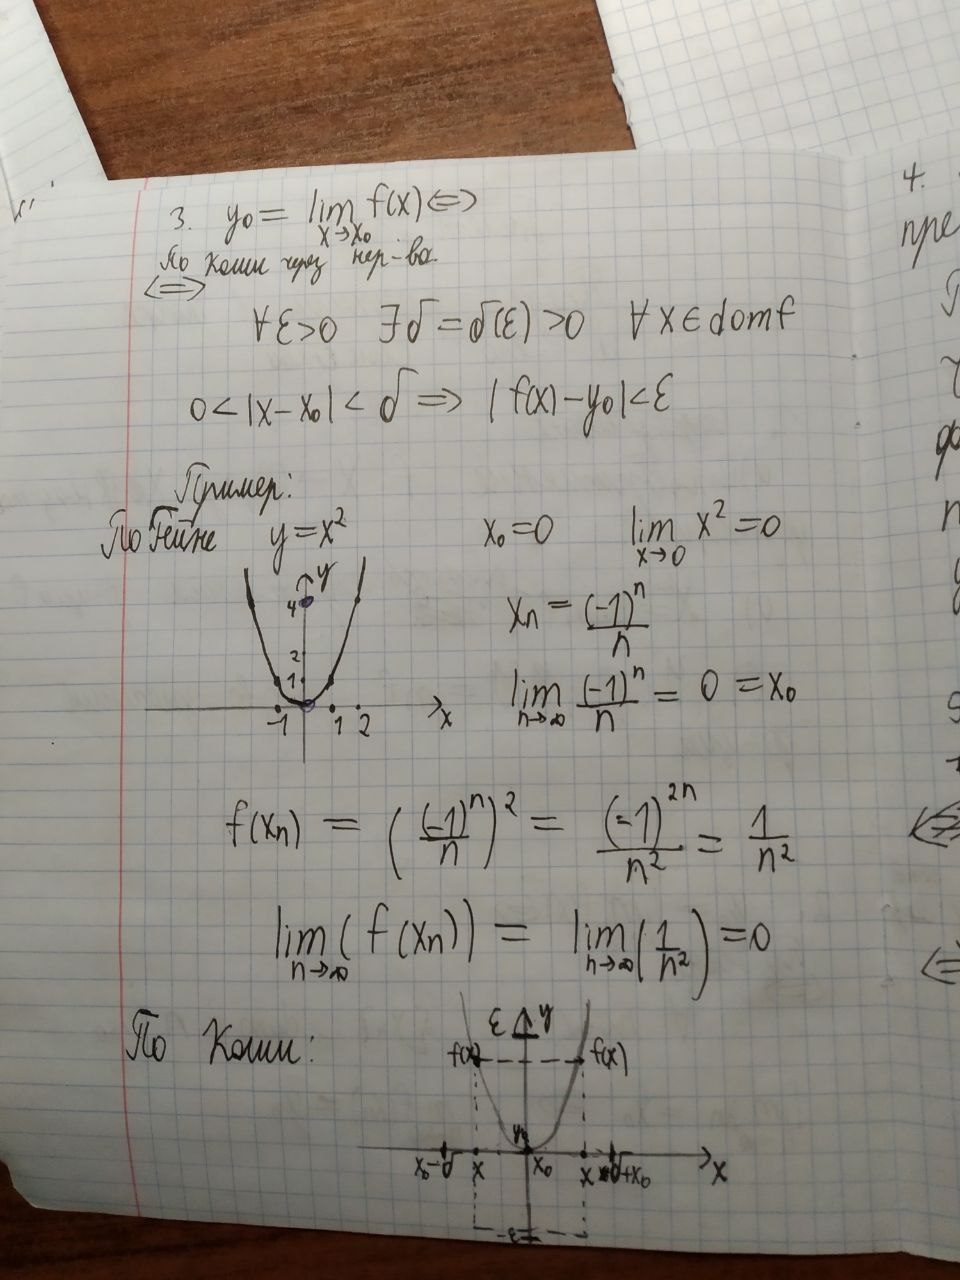 3. y₀ = lim f(x) ⟺
x→x₀
По Коши через нер-ва.
⟺
∀ε>0 ∃δ=δ(ε)>0 ∀x∈domf
0<|x-x₀|<δ ⟹ |f(x)-y₀|<ε
Пример:
По Гейне y=x² x₀=0 lim x²=0
x→0
y
4
2
1
-1 1 2 x
xₙ = (-1)ⁿ/n
lim (-1)ⁿ/n = 0 = x₀
n→∞
f(xₙ) = ((-1)ⁿ/n)² = (-1)²ⁿ/n² = 1/n²
lim (f(xₙ)) = lim (1/n²) = 0
n→∞ n→∞
По Коши:
ε y
f(x) f(x)
y₀
x₀-δ x x₀ x δ+x₀ x
-ε
4.
пре